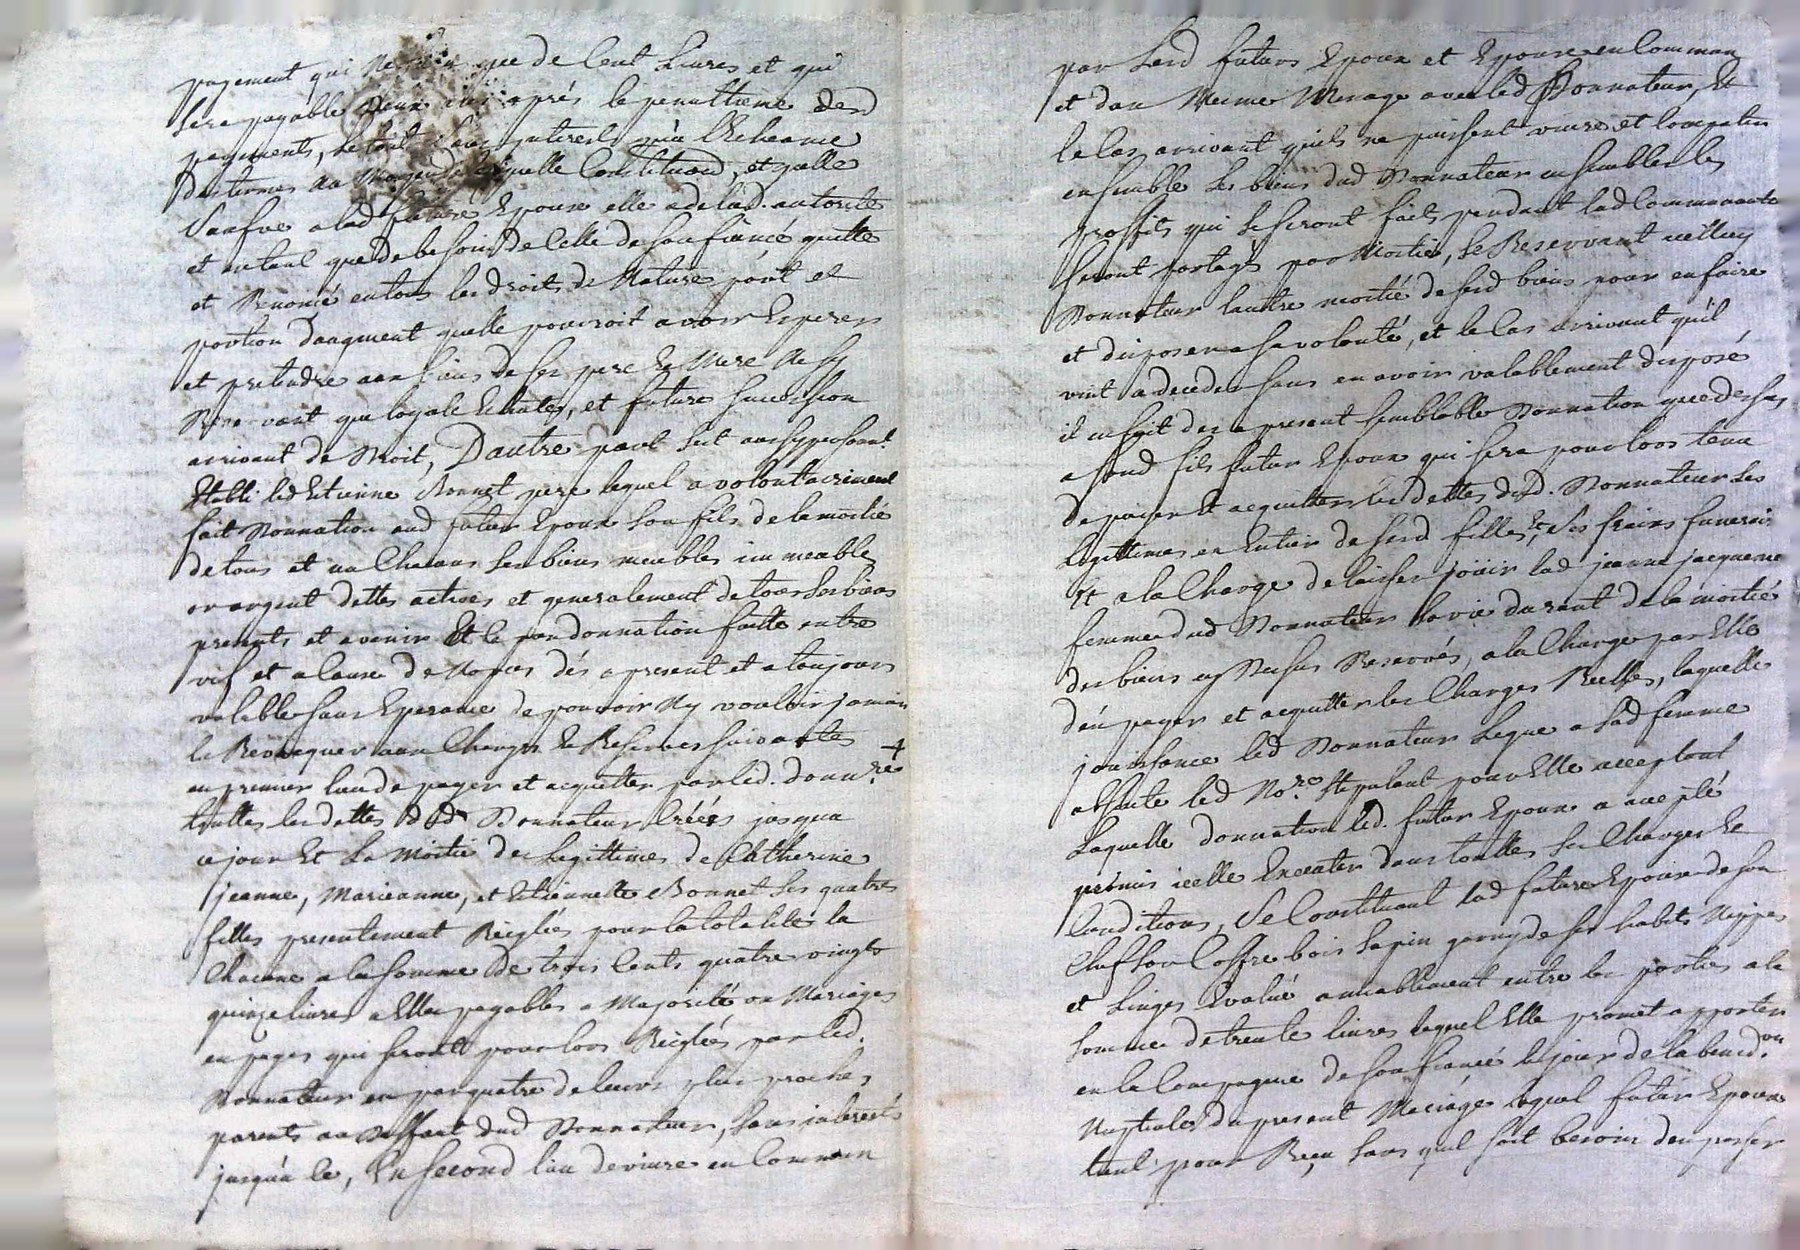 payement qui ne sera que de Cent Livres et qui
sera payable deux ans aprés le penultieme desd
payements, le tout sans interests qu'a l'Echeance
des termes au moyen de laquelle Constituaõn, et qu'elle
Saufve a lad future Epouse elle a de lad. autorité
et en tant que de besoin de Celle de son fiancé quitté
et Renoncé en tous les droits de Nature part et
portion d'augment quelle pourroit avoir Esperer
et pretendre aux biens de ses pere et Mere Ne sy
Reservant que loyale Echutes, et future succession
arrivant de Droit, D'autre part s'est aussy personnt
Etabli led Etienne Bonnet pere lequel a volontairement
fait Donnation aud futur Epoux son fils de la moitié
de tous et un Chacuns ses biens meubles immeubles
or argent dettes actives et generalement de tous ses biens
presents et avenir Et le par donnation faitte entre
vif et a Cause de Nopces dés a present et a toujours
valable sans Esperance de pouvoir Ny vouloir jamais
la Revoquer aux Charges et Reserves suivantes
en premier lieu de payer et acquitter par led. donnre +
touttes les dettes dud Donnateur Créés jusqua
ce jour Et la Moitié des Legittimes de Catherine
jeanne, Marieanne, et Etiennette Bonnet ses quatres
filles presentement Reiglées pour la totalité la
Chacune a la somme de trois Cents quatre vingts
quinze livres a Elles payables a Majorité ou Mariages
en payes qui seront pour lors Reiglées par led.
Donnateur ou par quatre de leurs plus proches
parents au deffaut dud Donnateur, sans interests
jusqu'a ce, En second lieu de vivre en Commun
par Lesd futurs Epoux et Epouse en Commun
et dun Meme Menage avec led Donnateur, Et
le Cas arrivant quils ne puissent vivre et Compatir
ensemble les biens dud Donnateur ensemble les
proffits qui se seront faits pendant lad Communauté
seront partagés par Moitié, se Reservant icelluy
Donnateur lautre moitié de sesd biens pour en faire
et disposer a sa volonté, et le Cas arrivant qu'il
vint a deceder sans en avoir valablement disposé
il en fait des a present semblable Donnation que dessus
a sond fils futur Epoux qui sera pour lors tenu
de payer Et acquitter les dettes dud. Donnateur les
Legittimes en Entier de sesd filles, Et ses fraix funerairs
Et a la Charge de laisser joüir lad jeanne jacqueme
femme dud Donnateur sa vie durant de la moitié
des biens cy dessus Reservés, a la Charge par Elle
d'en payer et acquitter les Charges Reelles, laquelle
jouissance led Donnateur Legue a sad femme
absente led Nore stipulant pour Elle acceptant
Laquelle donnation led. futur Epoux a accepté
promis icelle Executer dans touttes ses Charges Et
Conditions, Se Constituant lad future Epouse de son
Chef son Coffre bois sapin garny de ses habits Nippes
et Linges Evalué amiablement entre les parties a la
somme de trente livres lequel Elle promet apporter
en la Compagnie de son fiancé le jour de la benedon
Nuptiales du present Mariage lequel futur Epoux
tient pour Reçu sans quil soit besoin d'en passer